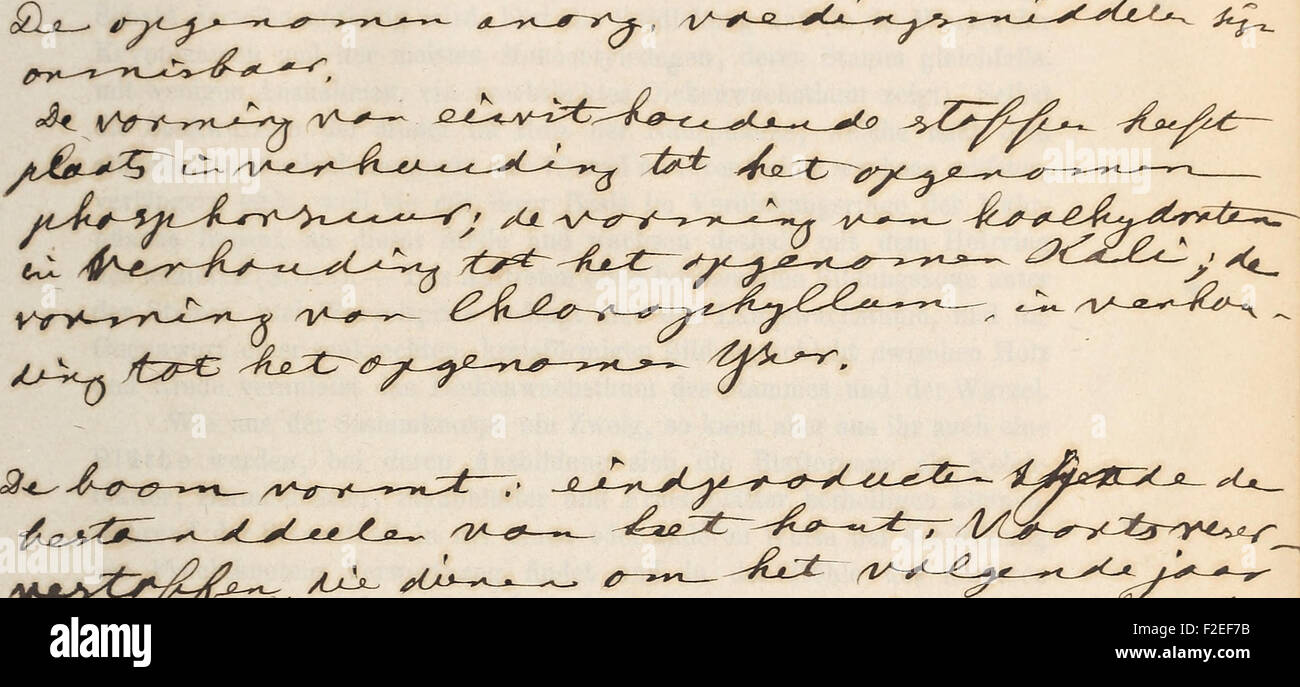 De opgenomen anorg. voedingsmiddelen zijn
onmisbaar.
De vorming van eiwithoudende stoffen heeft
plaats in verhouding tot het opgenomen
phosphorzuur; de vorming van koolhydraten
in verhouding tot het opgenomen Kali; de
vorming van Chlorophyllum in verhou-
ding tot het opgenomen Yzer.
De boom vormt: eindproducten zijnde de
bestanddeelen van het hout. Voorts reser-
vestoffen, die dienen om het volgende jaar
alamy
Image ID: F2EEF7B
www.alamy.com